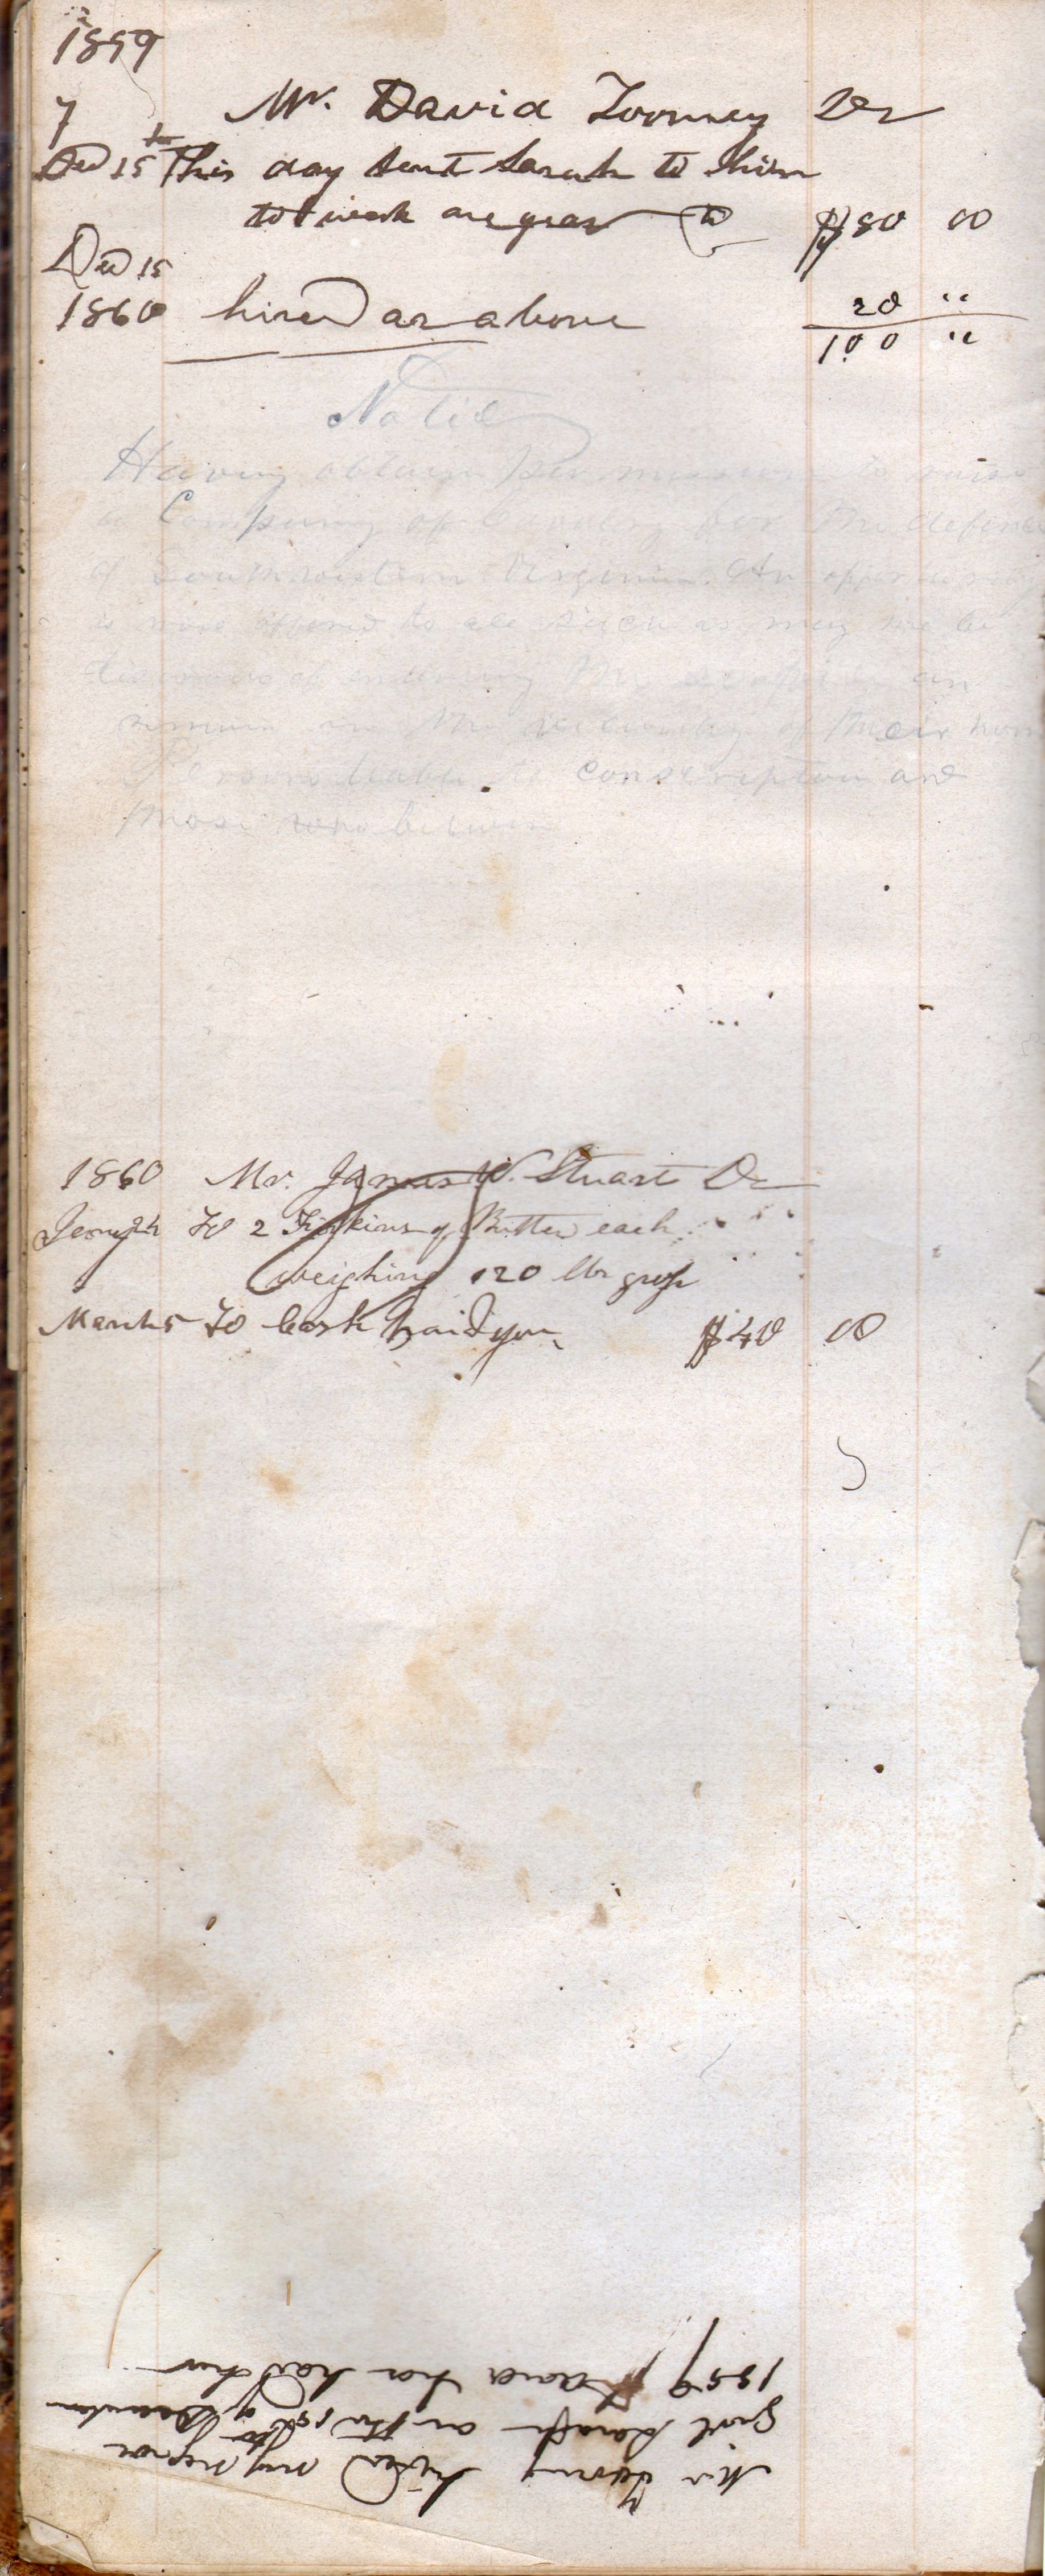 1859
7 Mr. David Toomey Dr
Dec 15th This day sent Sarah to him
to work one year @ $80 00
Dec 15
1860 hired as above 20 "
100 "
Notice
Having obtain permission to raise
a Company of Cavalry for the defence
of Southwestern Virginia. An opportunity
is now offered to all such as may be
desirous of entering the service and
remain in the vicinity of their hom
Persons liable to conscription and
those who
1860 Mr. James W. Stuart Dr
To 2 Firkins of Butter each
weighing 120 lbs gross
March 5 To Cash paid you $40 00
Mr Toomy hired my negroe
Girl Sarah on the 15th of December
1859 and has had her